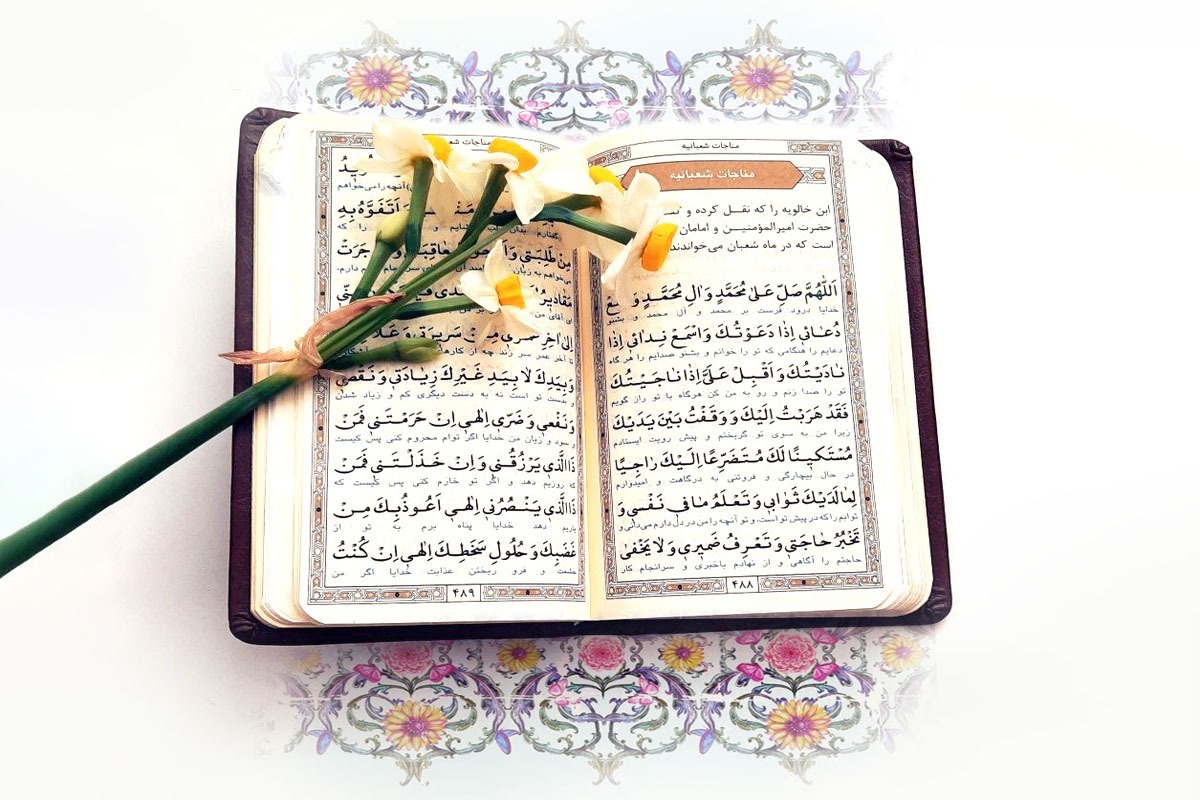 مناجات شعبانیه
مناجات شعبانیه
ابن خالویه را که نقـل کرده و
حضرت امیرالمؤمنیـن و امامان
است که در ماه شعبان می‌خواندند
اَللّٰهُمَّ صَلِّ عَلىٰ مُحَمَّدٍ وَاٰلِ مُحَمَّدٍ وَ
خدایا درود فرست بر محمد و آل محمد و بشنو
دُعائى اِذا دَعَوْتُكَ وَاسْمَعْ نِدائى اِذا
دعایم را هنگامی که تو را خوانم و بشنو صدایم را هر گاه
نادَيْتُكَ وَاَقْبِلْ عَلَىَّ اِذا ناجَيْتُكَ
تو را صدا زنم و رو به من کن هرگاه با تو راز گویم
فَقَدْ هَرَبْتُ اِلَيْكَ وَ وَقَفْتُ بَيْنَ يَدَيْكَ
زیرا من به سوی تو گریختم و پیش رویت ایستادم
مُسْتَكيناً لَكَ مُتَضَرِّعًا اِلَيْكَ راجِيًا
در حال بیچارگی و فروتنی به درگاهت و امیدوارم
لِمالَدَيْكَ ثَوابى وَتَعْلَمُ ما فى نَفْسى وَ
ثوابم را که در پیش تو است، و تو آنچه را من در دل دارم می‌دانی و
تَخْبُرُ حاجَتى وَتَعْرِفُ ضَميرى وَلا يَخْفىٰ
حاجتم را آگاهی و از نهادم باخبری و سرانجام کار
۴۸۸
مناجات شعبانیه
اُريدُ
آنچه را می‌خواهم
وَاَتَفَوَّهُ بِهِ
را که
مِنْ طَلِبَتى
جَرَتْ
می‌خواهم به زبان
دارم.
مَقاديرُ
ای آقای من
اِلىٰ اٰخِرِ عُمْرى مِنْ سَريرَتى وَ
تا آخر عمر سر زند چه از کارهای
وَبِيَدِكَ لا بِيَدِ غَيْرِكَ زِيادَتى وَنَقْصى
و بدست تو است نه به دست دیگری کم و زیاد شدن
وَنَفْعى وَضَرّى اِلٰهى اِنْ حَرَمْتَنى فَمَنْ
و سود و زیان من خدایا اگر توام محروم کنی پس کیست
ذَاالَّذى يَرْزُقُنى وَاِنْ خَذَلْتَنى فَمَنْ
که روزیم دهد و اگر تو خارم کنی پس کیست که
ذَاالَّذى يَنْصُرُنى اِلٰهى اَعُوذُ بِكَ مِنْ
یاریم دهد خدایا پناه برم به تو از
غَضَبِكَ وَحُلُولِ سَخَطِكَ اِلٰهى اِنْ كُنْتُ
خشمت و فرو ریختن عذابت خدایا اگر من
۴۸۹